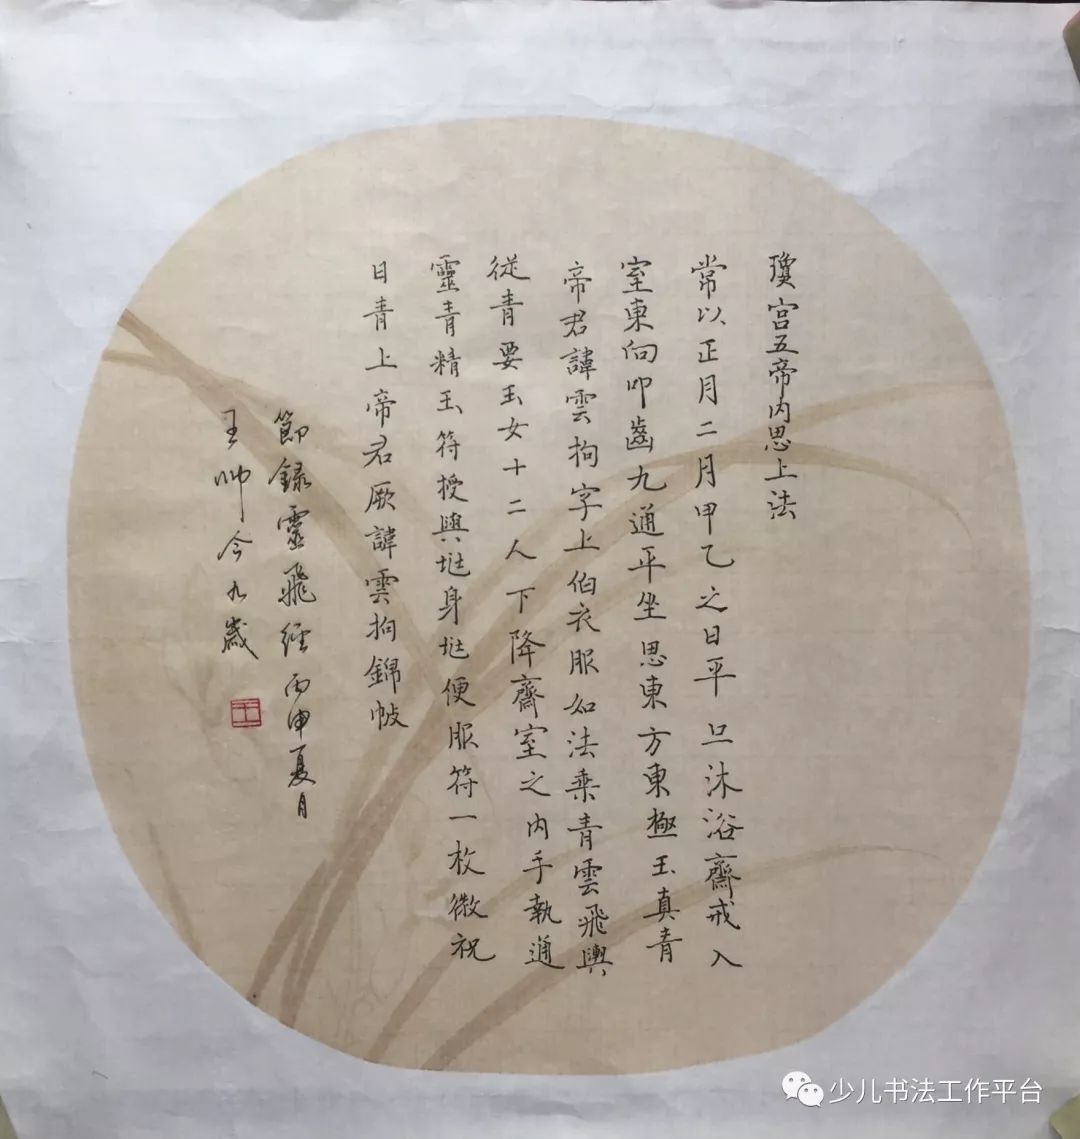 瓊宮五帝內思上法
常以正月二月甲乙之日平旦沐浴齋戒入
室東向叩齒九通平坐思東方東極玉真青
帝君諱雲拘字上伯衣服如法乘青雲飛輿
從青要玉女十二人下降齋室之內手執通
靈青精玉符授與兆身兆便服符一枚微祝
曰青上帝君厥諱雲拘錦帔
節錄靈飛經丙申夏月
王帅今九歲
王
少儿书法工作平台